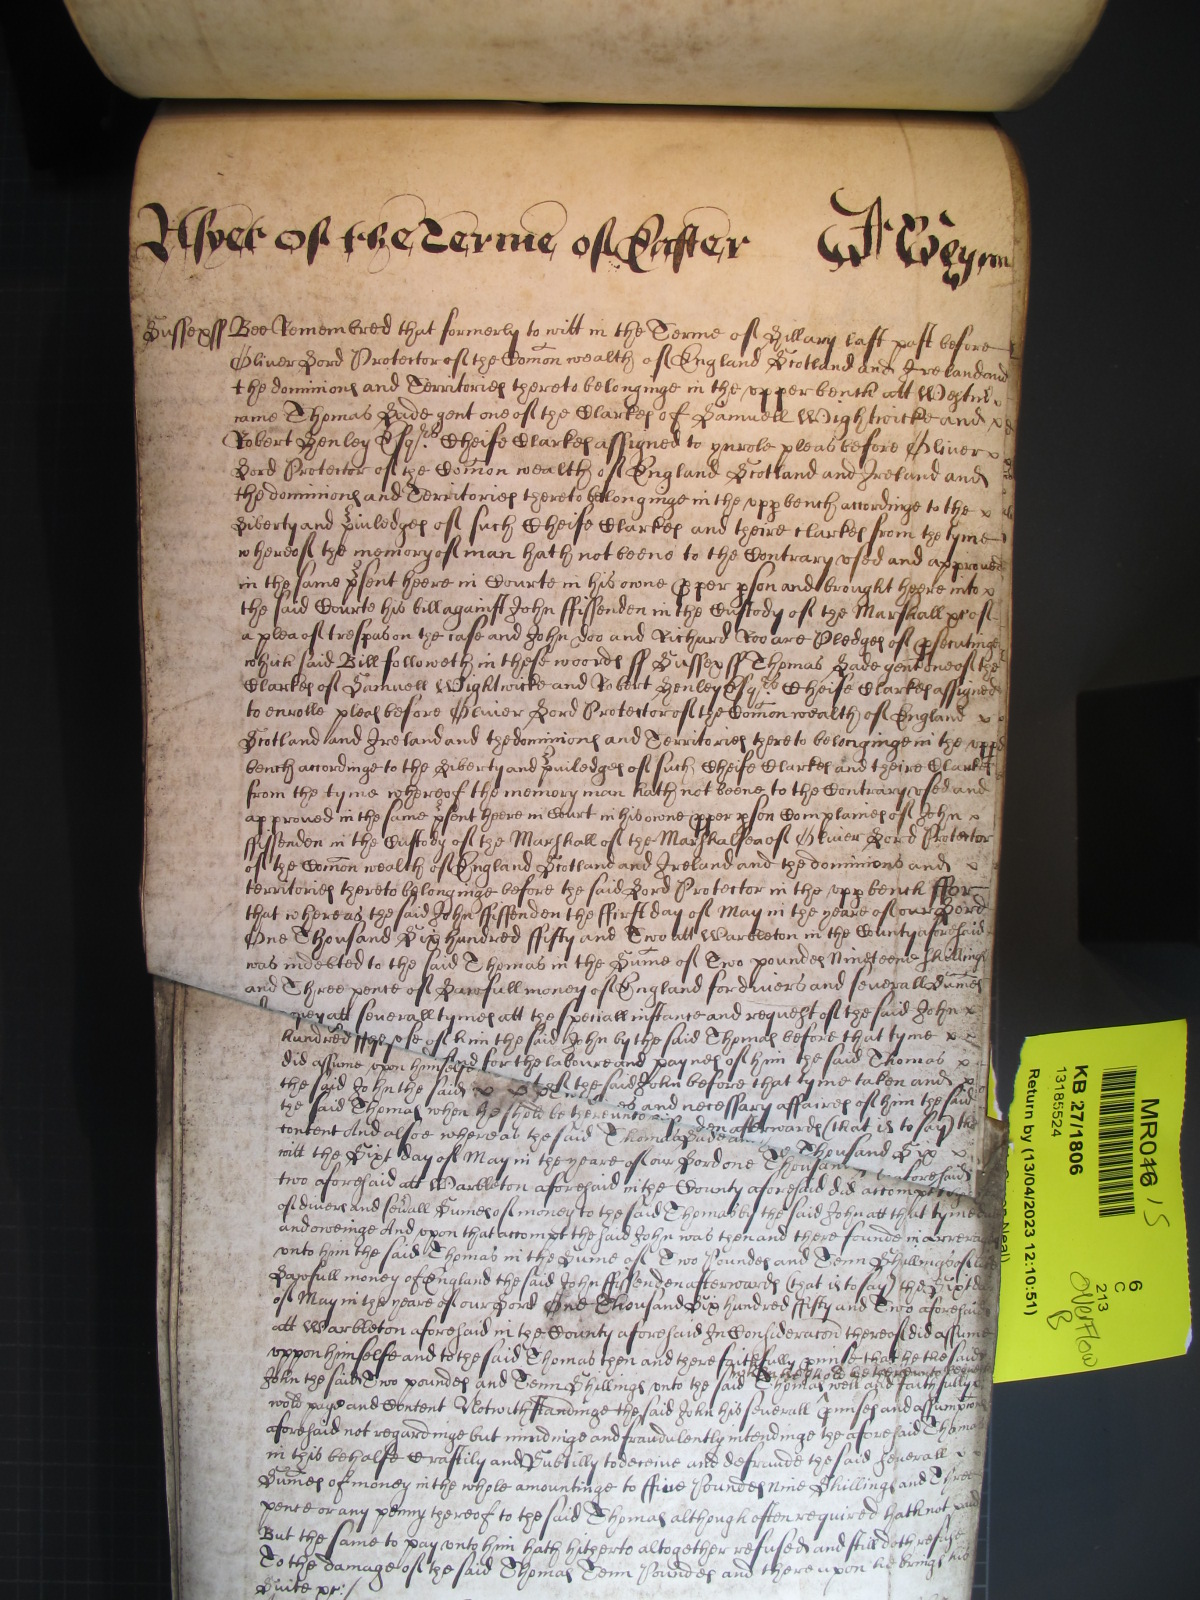 As yet of the Terme of Easter W Wynn
Sussex ss Bee Remembred that formerly to witt in the Terme of Hillary last past before
Oliver Lord Protector of the Com̄on wealth of England Scotland and Ireland and
the dominions and Territories thereto belonginge in the vpper bench att Westm̄
came Thomas Lade gent one of the Clarkes of Samuell Wightwicke and x
Robert Henley Esqrs Cheife Clarkes assigned to ynrole pleas before Oliver x
Lord Protector of the Com̄on wealth of England Scotland and Ireland and
the dominions and Territories thereto belonginge in the vpp bench accordinge to the x
Liberty and Priuledges of such Cheife Clarkes and theire clarkes from the tyme
whereof the memory of man hath not beene to the Contrary vsed and approued
in the same psent heere in Courte in his owne pper pson and brought heere into x
the said Courte his bill against John ffissenden in the Custody of the Marshall &c of
a plea of trespas on the case and John Doo and Richard Roo are Pledges of psecutinge
which said Bill followeth in these woords ss Sussex ss Thomas Lade gent one of the
Clarkes of Samuell Wightwicke and Robert Henley Esqrs Cheife Clarkes assigned
to enrolle pleas before Oliver Lord Protector of the Com̄on wealth of England x x
Scotland and Ireland and the dominions and Territories thereto belonginge in the vpp
bench accordinge to the Liberty and Priuiledges of such Cheife Clarkes and theire Clarkes
from the tyme whereof the memory man hath not beene to the Contrary vsed and
approued in the same psent heere in Court in his owne pper pson Complaines of John x
ffissenden in the Custody of the Marshall of the Marshalsea of Oliver Lord Protector
of the Com̄on wealth of England Scotland and Ireland and the dominions and x
territories thereto belonginge before the said Lord Protector in the vpp bench ffor
that whereas the said John ffissenden the ffirst day of May in the yeare of our Lord
One Thousand Six hundred ffifty and Two att Warbleton in the County aforesaid
was indebted to the said Thomas in the Sum̄e of Two poundes Nineteene shillings
and Three pence of Lawfull money of England for divers and severall Sum̄es
att severall tymes att the speciall instance and request of the said John x
hundred vse of him the said John by the said Thomas before that tyme x x
did assume vpon himselfe for the labour and paynes of him the said Thomas x
the said John the said x x of the said John before that tyme taken and
the said Thomas when he shold be therevnto and necessary affaires of him the said
content And alsoe whereas the said Thomas Lade afterwards (that is to say) the
witt the Sixt day of May in the yeare of our Lord one Thousand Thousand Six x
two aforesaid att Warbleton aforesaid in the County aforesaid did accompt
of divers and seuall Sumes of money to the said Thomas by the said John att that tyme
and oweinge And vpon that accompt the said John was then and there founde in arrerages
vnto him the said Thomas in the Sume of Two Poundes and Tenn Shillings of like
Lawfull money of England the said John ffissenden afterwards (that is to say) the Sixt day
of May in the yeare of our Lord One Thousand Six hundred ffifty and Two aforesaid
att Warbleton aforesaid in the County aforesaid In Consideration thereof did assume
vppon himselfe and to the said Thomas then and there faithfully pmise that he the said
John the said Two poundes and Tenn Shillings vnto the said Thomas when he shold be therevnto well and faithfully
wold paye and Content Notwithstandinge the said John his seuerall pmises and assumptions
aforesaid not regardinge but mindinge and fraudulently intendinge the aforesaid Thomas
in this behalfe Craftily and Subtilly to deceive and defraude the said seuerall x x
Sumes of money in the whole amountinge to ffive Poundes nine Shillings and Three
pence or any penny thereof to the said Thomas although often required hath not paid
But the same to pay vnto him hath hitherto altogether refused and still doth refuse
To the damage of the said Thomas Tenn Poundes and there vpon he brings his
Suite &c:/
MR046 /5
KB 27/1806
13185524
Return by (13/04/2023 12:10:51)
Neal)
6
C
213
Overflow
B